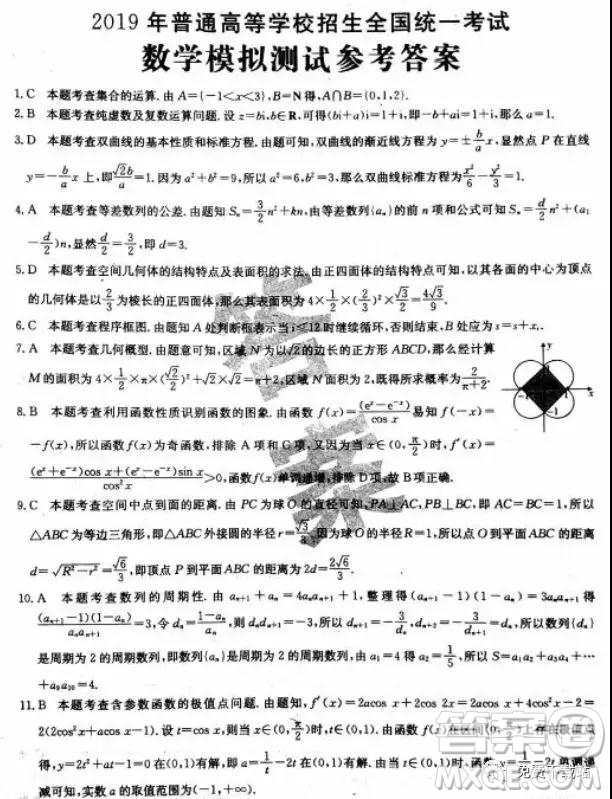 2019 年普通高等学校招生全国统一考试
数学模拟测试参考答案
1. C 本题考查集合的运算. 由 A={-1<x<3}, B=N 得, A∩B={0,1,2}.
2. B 本题考查纯虚数及复数运算问题. 设 z=bi, b∈R, 可得(bi+a)i=1+i, 即-b+ai=1+i, 那么 a=1.
3. D 本题考查双曲线的基本性质和标准方程. 由题可知, 双曲线的渐近线方程为 y=±b/a x, 显然点 P 在直线
y=-b/a x 上, 即√2b/a=1. 因为 a²+b²=9, 所以 a²=6, b²=3, 那么双曲线标准方程为 x²/6-y²/3=1.
4. A 本题考查等差数列的公差. 由题知 Sₙ=3/2n²+kn, 由等差数列{aₙ}的前 n 项和公式可知 Sₙ=d/2n²+(a₁
-d/2)n, 显然 d/2=3/2, 即 d=3.
5. D 本题考查空间几何体的结构特点及表面积的求法. 由正四面体性质可知, 以其各面的中心为顶点
的几何体是以2/3为棱长的正四面体, 那么表面积为 4×1/2×(2/3)²×√3/2=4√3/9.
6. C 本题考查程序框图. 由题知 A 处判断框表示当 i≤12 时继续循环, 否则结束, B 处应为 s=s+xᵢ.
7. A 本题考查几何概型. 由题意可知, 区域 N 为以√2的边长的正方形 ABCD, 那么经计算
M 的面积为 4×1/2×π×(√2/2)²+√2×√2=π+2, 区域 N 的面积为 2, 既得所求概率为2/π+2.
8. B 本题考查利用函数性质识别函数的图象. 由函数 f(x)=(eˣ-e⁻ˣ)/cos x 易知 f(-x)=
-f(x), 所以函数 f(x)为奇函数, 排除 A 项和 C 项, 又因为当 x∈(0,π/2)时, f′(x)=
(eˣ+e⁻ˣ)cos x+(eˣ-e⁻ˣ)sin x/cos²x>0, 函数 f(x)单调递增, 排除 D 项, 故 B 项正确.
9. C 本题考查空间中点到面的距离. 由 PC 为球 O 的直径可知, PA⊥AC, PB⊥BC, 即 AC=BC=1, 所以
△ABC 为等边三角形, 即△ABC 外接圆的半径 r=√3/3. 因为球 O 的半径 R=1, 所以点 O 到平面 ABC 的距离
d=√R²-r²=√6/3, 即顶点 P 到平面 ABC 的距离为 2d=2√6/3.
10. A 本题考查数列的周期性. 由 aₙ₊₁+aₙ=4aₙaₙ₊₁+1, 整理得(aₙ-1)(aₙ₊₁-1)=3aₙaₙ₊₁, 即
(aₙ-1)(aₙ₊₁-1)/aₙaₙ₊₁=3, 令 dₙ=1-aₙ/aₙ, 则 dₙdₙ₊₁=3
是周期为 2 的周期数列, 即数列{aₙ}也是周期为 2 的周期数列, 由 a₁=4 得 a₂=1/5, 所以 S=a₁a₂+
+a₉a₁₀=4.
11. B 本题考查含参数函数的极值点问题. 由题知, f′(x)=2acos x+2acos x+4cos²x-2=
2(2cos²x+2acos x-1). 设 t=cos x, 则
得, y=2t²+2at-1=0 在(0,1)有解, 即 a=
减可知, 实数 a 的取值范围为(-1/2,+∞).
答案